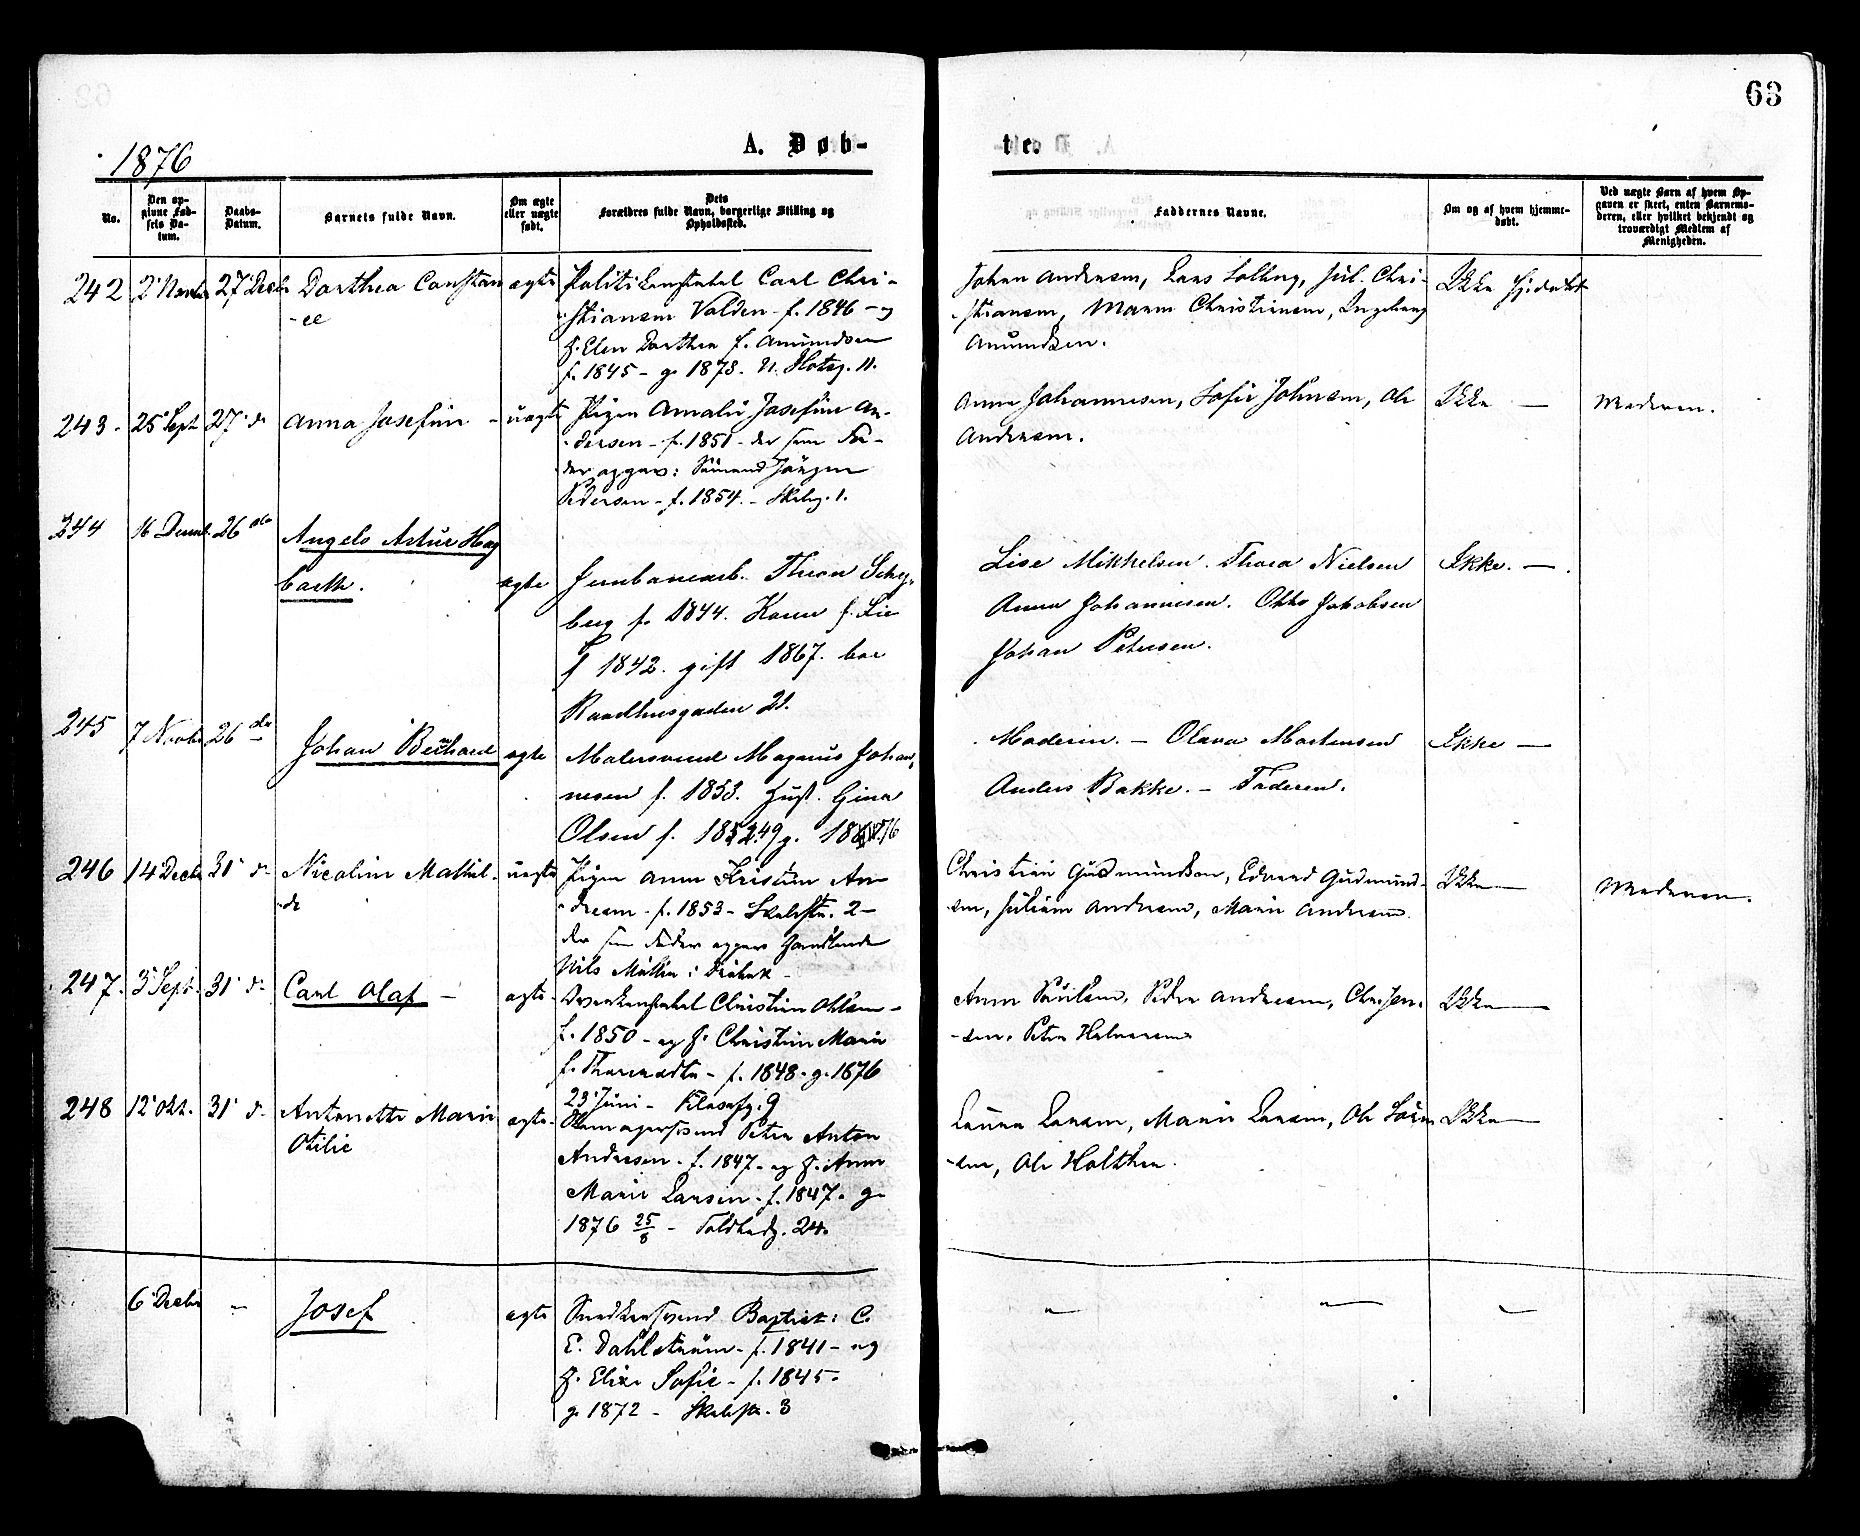 63
1876
A. Døb-
te.
No.
Den op-
givne Fød-
sels Da-
tum.
Daabs-
Datum.
Barnets fulde Navn.
Om ægte
eller uægte
født.
Dets
Forældres fulde Navn, borgerlige Stilling og
Opholdssted.
Faddernes Navne.
Om og af hvem hjemme-
døbt.
Ved uægte Børn af hvem Op-
gaven er skeet, enten Barnemo-
deren, eller hvilket bekjendt og
troværdigt Medlem af
Menigheden.
242
27 Decbr
Dorthea Constan
-ce
ægte
Politikonstabel Carl Chri-
stiansen Valden - f. 1846 - og
H. Elen Dorthea f. Amundsen
f. 1845 - g. 1873.
Johan Andersen, Lars Solberg, Jul. Chri-
stiansen, Maren Christiansen, Ingeborg
Amundsen.
Ikke hjdøbt
243.
25 Sept
27 do
Anna Josefine -
uægte
Pigen Amalie Josefine An-
dersen - f. 1851 - der som Fa-
der opgav: Sømand Jørgen
Pedersen - f. 1854. - Skoleg. 1.
Anna Johannesen, Sofie Johnsen, Ole
Andersen.
Ikke —
Moderen.
244
16 Decmb.
26 do
Angelo Artur Hag
barth.
ægte
Jernbanearb. Thron Schy-
berg f. 1844. Karen f. Lie
f 1842. gift 1867. boe
Raadhusgaden 21.
Lise Mikkelsen. Thora Nielsen
Anna Johannesen. Otto Jakobsen
Johan Petersen.
Ikke. —.
245
7 Novbr
26 do
Johan Bernhard
ægte
Malersvend Magnus Johan-
nesen f. 1853. Hust. Gina
Olsen f.
Moderen. — Olava Mortensen
Anders Bakke. — Faderen.
Ikke —
246
14 Decbr
31 do
Nicoline Mathil-
de
uægte
Pigen Anna Kristine An
dresen - f. 1853 - Skolestr. 2 -
der som Fader opgav Handlende
Nils Møller i Drøbak -
Christian Gudmundsen, Edvard Gudmund-
sen, Juliane Andersen, Marie Andersen.
Ikke —
Moderen.
247.
3 Sept.
31 do
Carl Olaf —
ægte
Christian Ohlsen -
f. 1850 - og H. Christine Marie
f. - f. 1848 - g. 1876
23 Juni - 9
Anna Paulsen, Peder Andersen, Chr. Jen-
sen, Petra Halvorsen
Ikke —
248
12 Okt.
31 do
Antonette Marie
Otilie
ægte
Peter Anton
Andresen - f. 1847 - og H. Anna
Marie Larsen - f. 1847 - g.
1876 25/8 - Toldbodg. 24.
Laura Larsen, Marie Larsen, Ole Lar
sen, Ole Holthe
Ikke —
6 Decbr
-
Josef
ægte
Snedkersvend Baptist: C.
E. Dahlström - f. 1841 - og
H. Elise Sofie - f. 1845 -
g. 1872 - Skolestr. 3